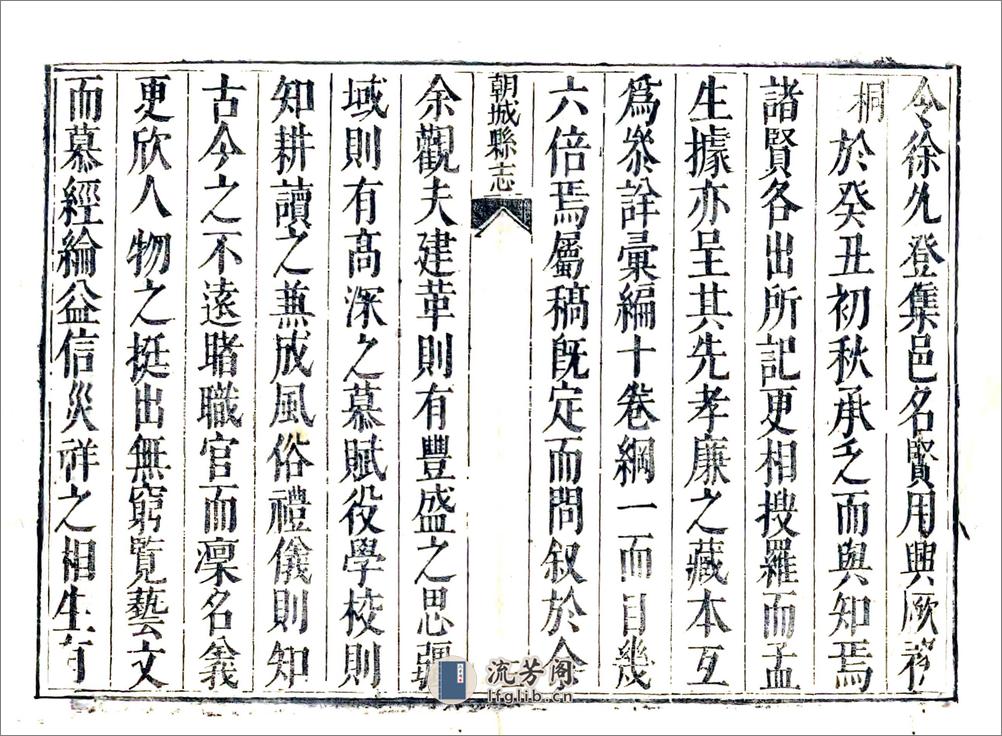 令徐允登集邑名賢用興厥務
桐於癸丑初秋承乏而與知焉
諸賢各出所記更相搜羅而孟
生據亦呈其先孝廉之藏本互
爲參詳彙編十卷綱一而目幾
六倍焉屬稿既定而問叙於余
朝城縣志
余觀夫建革則有豐盛之思疆
域則有高深之慕賦役學校則
知耕讀之兼成風俗禮儀則知
古今之不遠睹職官而凜名義
更欣人物之挺出無窮覽藝文
而慕經綸益信災祥之相生有
流芳阁
lfglib.cn